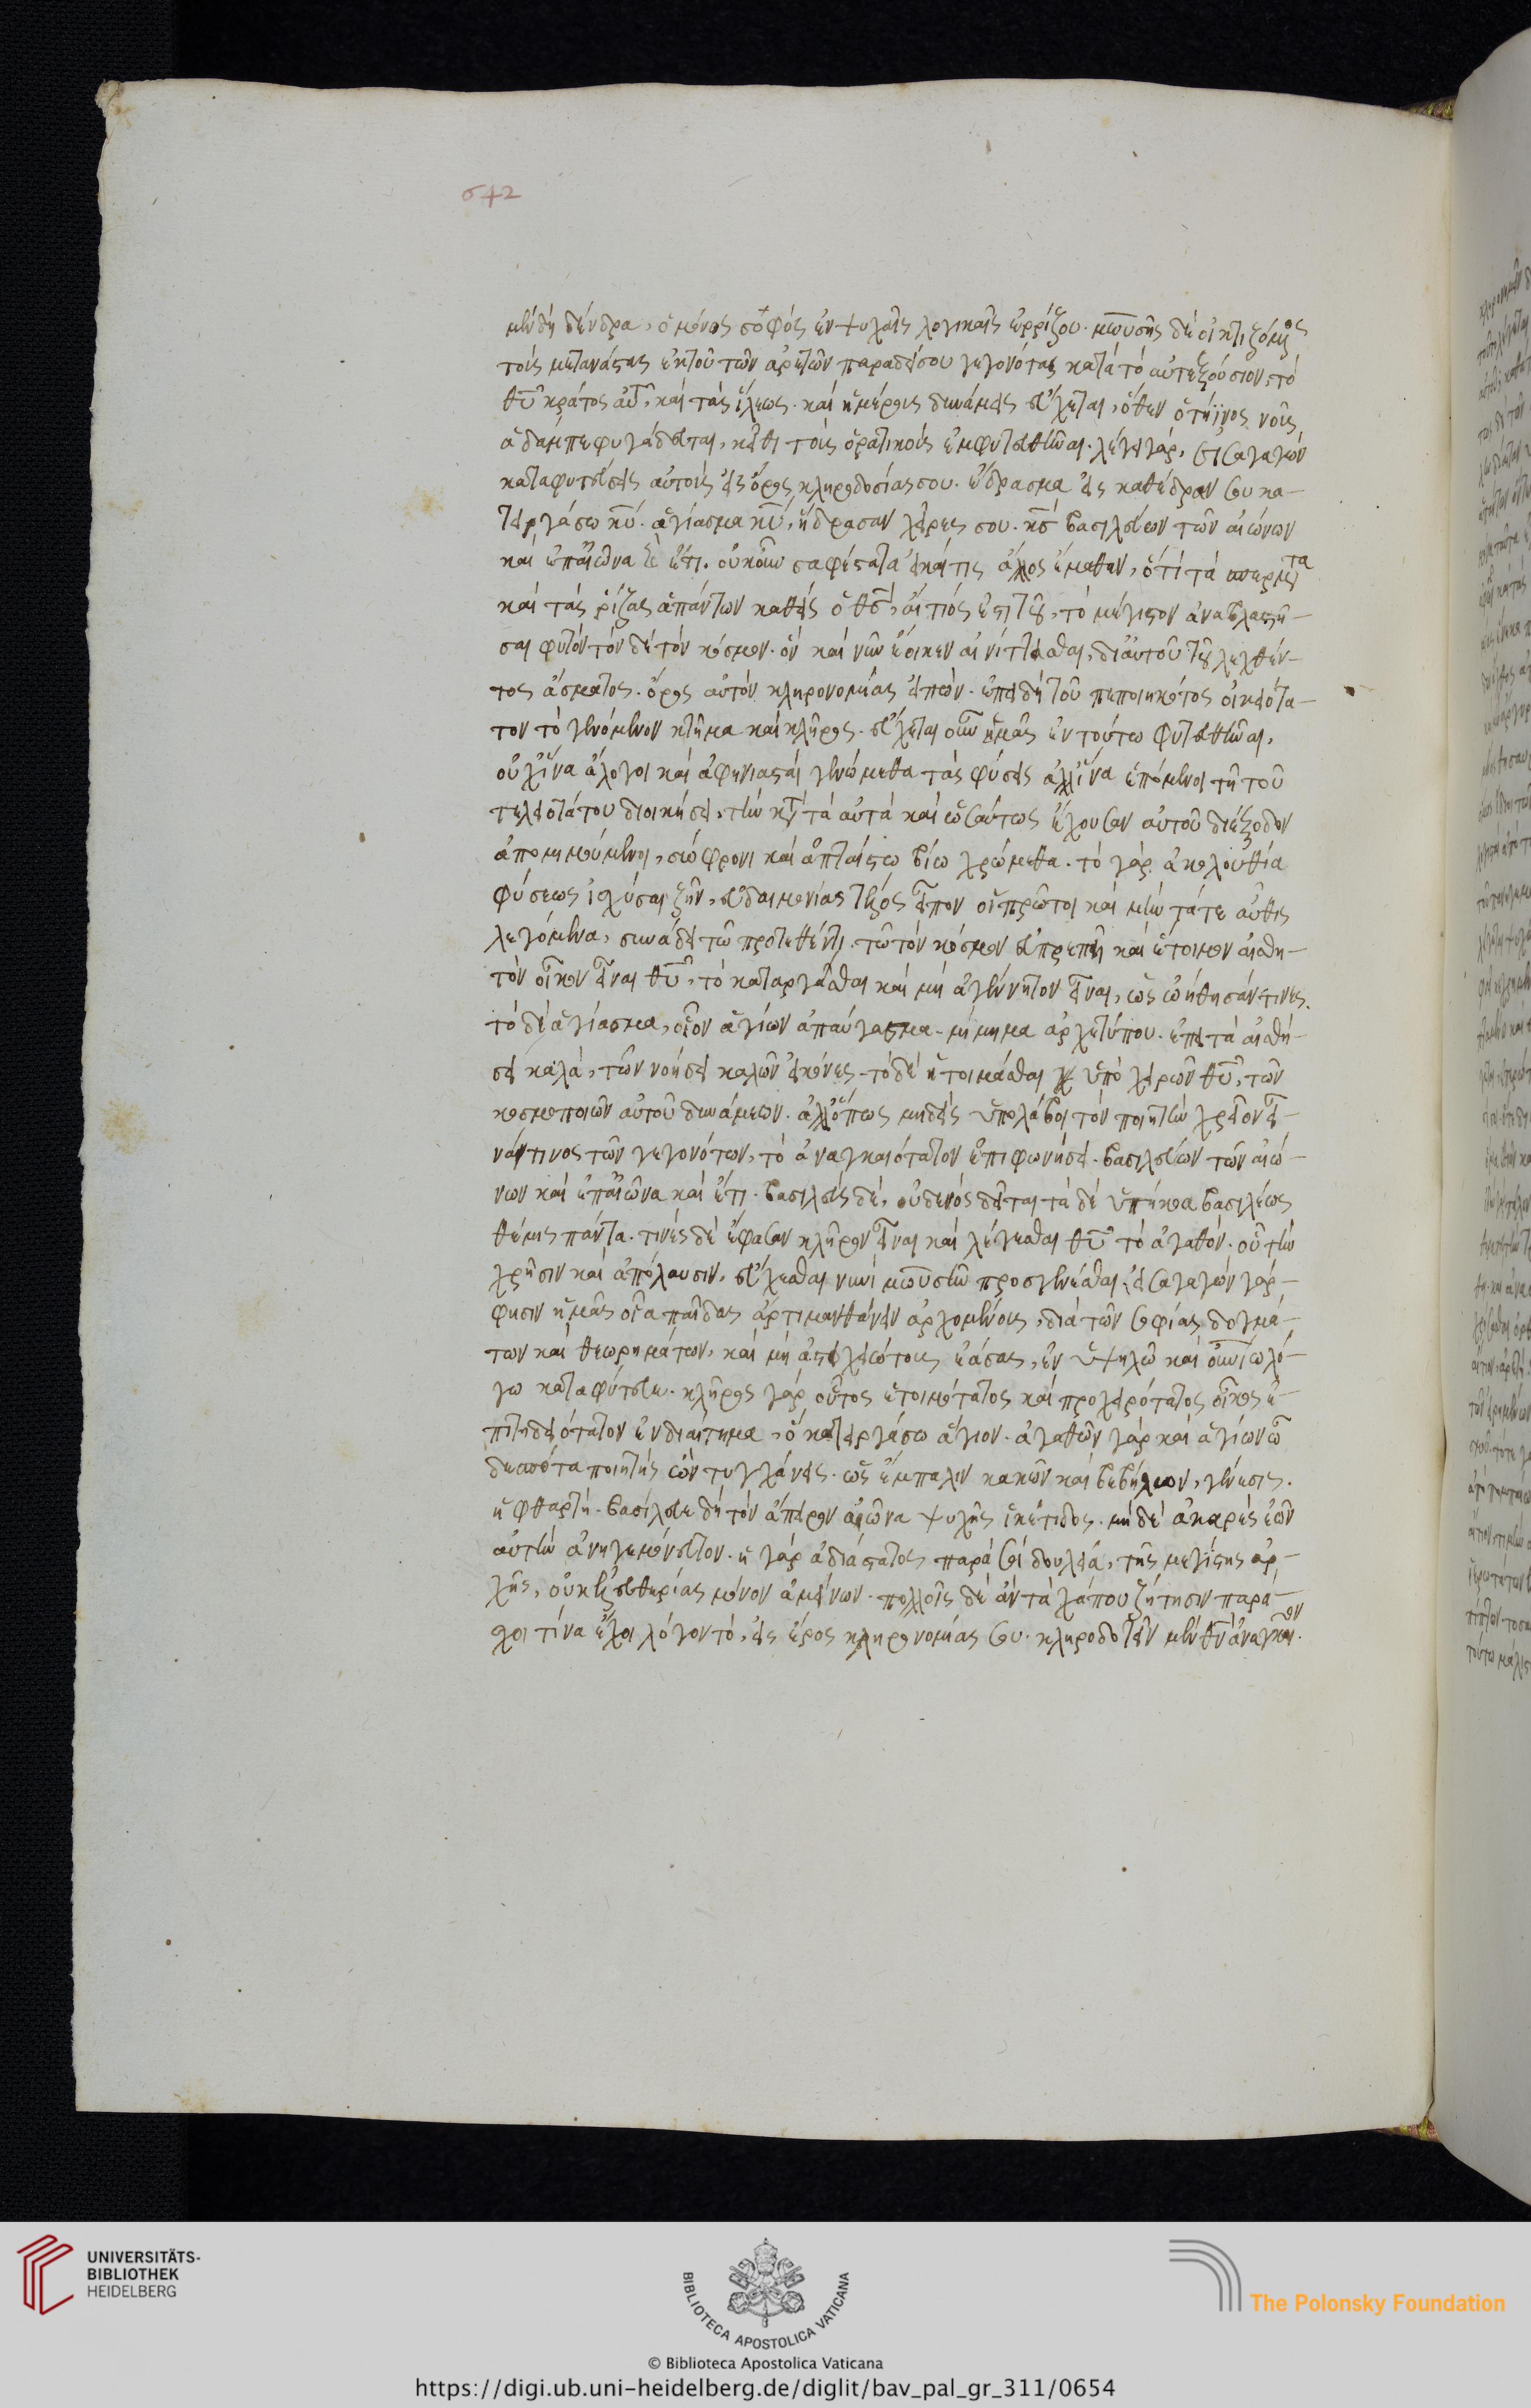 642
μὲν δὴ δένδρα, ὁ μόνος σοφὸς ἐν ψυχαῖς λογικαῖς ἐρρίζου. μωυσῆς δὲ οἰκτιζόμενος
τοὺς μετανάστας ἐκ τοῦ τῶν ἀρετῶν παραδείσου γεγονότας κατὰ τὸ αὐτεξούσιον, τὸ
θυ κράτος αὐτοῦ, καὶ τὰς ἵλεως. καὶ ἡμέρους δυνάμεις εὔχεται, ὅθεν ὁ γήϊνος νοῦς
ἀδὰμ πεφυγάδευται, κεῖθι τοὺς ὁρατικοὺς ἐμφυτευθῆναι. λέγει γάρ, εἰσαγαγὼν
καταφυτεύσεις αὐτοὺς εἰς ὄρος κληροδοσίας σου. ἕδρασμα εἰς καθέδραν σου κα-
τειργάσω κύ. ἁγίασμα κύ, ἥδρασαν χεῖρές σου. κσ βασιλεύων τῶν αἰώνων
καὶ ἐπαἰῶνα καὶ ἔτι. οὐκοῦν σαφέστατα εἰ καί τις ἄλλος ἔμαθεν, ὅτι τὰ σπέρματα
καὶ τὰς ῥίζας ἁπάντων καθεὶς ὁ θσ, αἴτιός ἐστι τοῦ, τὸ μέγιστον ἀναβλαστῆ-
σαι φυτὸν τὸν δὲ τὸν κόσμον. ὃν καὶ νῦν ἔοικεν αἰνίττεσθαι, δι αὐτοῦ τοῦ λεχθέν-
τος ἄσματος. ὄρος αὐτὸν κληρονομίας εἰπών. ἐπειδὴ τοῦ πεποιηκότος οἰκειότα-
τον τὸ γενόμενον κτῆμα καὶ κλῆρος. εὔχεται οὖν ἡμᾶς ἐν τούτω φυτευθῆναι,
οὐχ ἵνα ἄλογοι καὶ ἀφηνιασταὶ γενώμεθα τὰς φύσεις ἀλλ ἵνα ἑπόμενοι τῆ τοῦ
τελειοτάτου διοικήσει, τὴν κατὰ τὰ αὐτὰ καὶ ὡσαύτως ἔχουσαν αὐτοῦ διέξοδον
ἀπομιμούμενοι, σώφρονι καὶ ἀπταίστω βίω χρώμεθα. τὸ γὰρ ἀκολουθία
φύσεως ἰσχύσαι ζῆν, εὐδαιμονίας τέλος εἶπον οἱ πρῶτοι καὶ μὴν τά τε αὖθις
λεγόμενα, συνάδει τῶ προτεθέντι. τῶ τὸν κόσμον εὐπρεπῆ καὶ ἕτοιμον αἰσθη-
τὸν οἶκον εἶναι θυ, τὸ κατειργᾶσθαι καὶ μὴ ἀγένητον εἶναι, ὡς ὠήθησάν τινες.
τὸ δὲ ἁγίασμα, οἷον ἁγίων ἀπαύγασμα. μίμημα ἀρχετύπου. ἐπεὶ τὰ αἰσθή-
σει καλὰ, τῶν νοήσει καλῶν εἰκόνες. τὸ δὲ ἡτοιμάσθαι ὑπὸ χειρῶν θυ, τῶν
κοσμοποιῶν αὐτοῦ δυνάμεων. ἀλλ ὅπως μηδεὶς ὑπολάβοι τὸν ποιητὴν χρεῖον εἶ-
ναί τινος τῶν γεγονότων, τὸ ἀναγκαιότατον ἐπιφωνήσει. βασιλεύων τῶν αἰώ-
νων καὶ ἐπαἰῶνα καὶ ἔτι. βασιλεὺς δὲ, οὐδενὸς δεῖται τὰ δὲ ὑπήκοα βασιλέως
θέμις πάντα. τινὲς δὲ ἔφασαν κλῆρον εἶναι καὶ λέγεσθαι θυ τὸ ἀγαθόν. οὗ τὴν
χρῆσιν καὶ ἀπόλαυσιν, εὔχεσθαι νυνὶ μωυσῆν προσγενέσθαι, εἰσαγαγὼν γάρ
φησιν ἡμᾶς οἷα παῖδας ἄρτι μανθάνειν ἀρχομένους, διὰ τῶν σοφίας δογμά-
των καὶ θεωρημάτων, καὶ μὴ ἀστοιχειώτους ἐάσας, ἐν ὑψηλῶ καὶ οὐνίω λό-
γω καταφύτευσον. κλῆρος γὰρ οὗτος ἑτοιμότατος καὶ προχειρότατος οἶκος ἐ-
πιτηδειότατον ἐνδιαίτημα, ὃ κατειργάσω ἅγιον. ἀγαθῶν γὰρ καὶ ἁγίων ὦ
δέσποτα ποιητὴς ὢν τυγχάνεις. ὡς ἔμπαλιν κακῶν καὶ βεβήλων, γένεσις.
ἡ φθαρτή. βασίλευε δὴ τὸν ἄπειρον αἰῶνα ψυχῆς ἱκέτιδος. μηδὲ ἀκαρὲς ἐῶν
αὐτὴν ἀνηγεμόνευτον. ἡ γὰρ ἀδιάστατος παρὰ σοὶ δουλεία, τῆς μεγίστης ἀρ-
χῆς, οὐκ ἐλευθερίας μόνον ἀμείνων. πολλοῖς δὲ ἂν τάχα που ζήτησιν παρά-
σχοι τίνα ἔχοι λόγον τό, εἰς ὄρος κληρονομίας σου. κληροδοτεῖν μὲν θν ἀναγκαῖον.
UNIVERSITÄTS-
BIBLIOTHEK
HEIDELBERG
BIBLIOTECA APOSTOLICA VATICANA
The Polonsky Foundation
© Biblioteca Apostolica Vaticana
https://digi.ub.uni-heidelberg.de/diglit/bav_pal_gr_311/0654